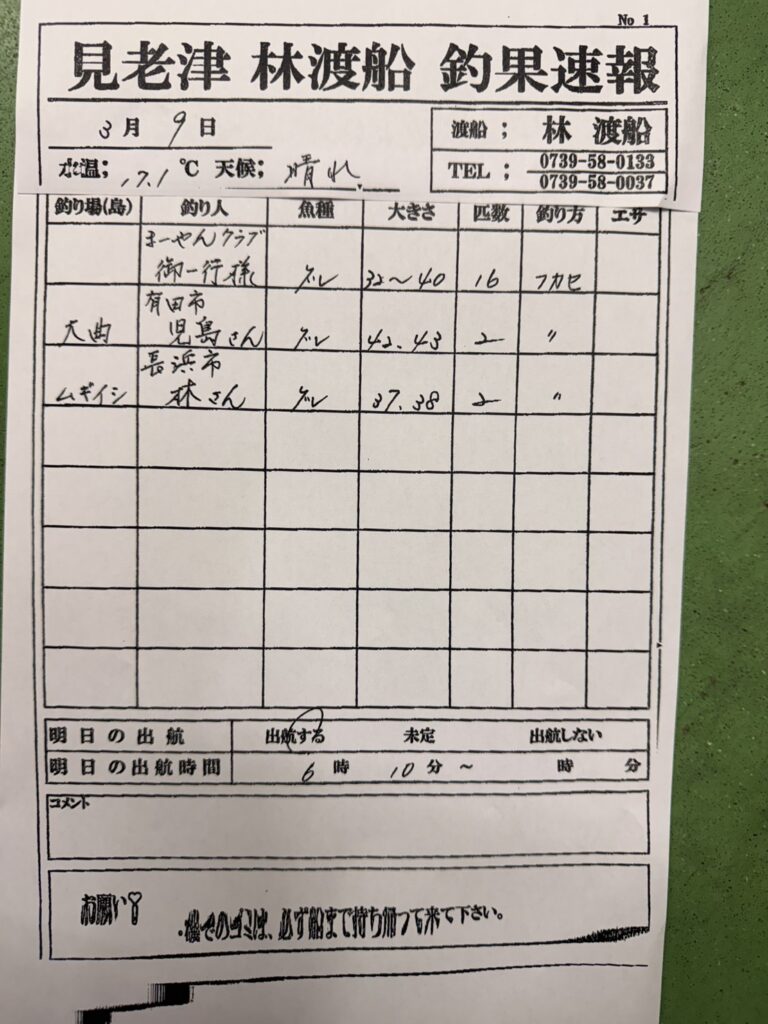 No 1
見老津 林渡船 釣果速報
3月 9日
渡船; 林 渡船
水温; 17.1 ℃ 天候; 晴れ
TEL; 0739-58-0133
0739-58-0037
釣り場(島) 釣り人 魚種 大きさ 匹数 釣り方 エサ
まーやんクラブ
御一行様 グレ 32〜40 16 フカセ
有田市
大曲 児島さん グレ 42.43 2 〃
長浜市
ムギイシ 林さん グレ 37.38 2 〃
明日の出航 出航する 未定 出航しない
明日の出航時間 6時 10分 〜 時 分
コメント
お願い
・磯でのゴミは、必ず船まで持ち帰って来て下さい。